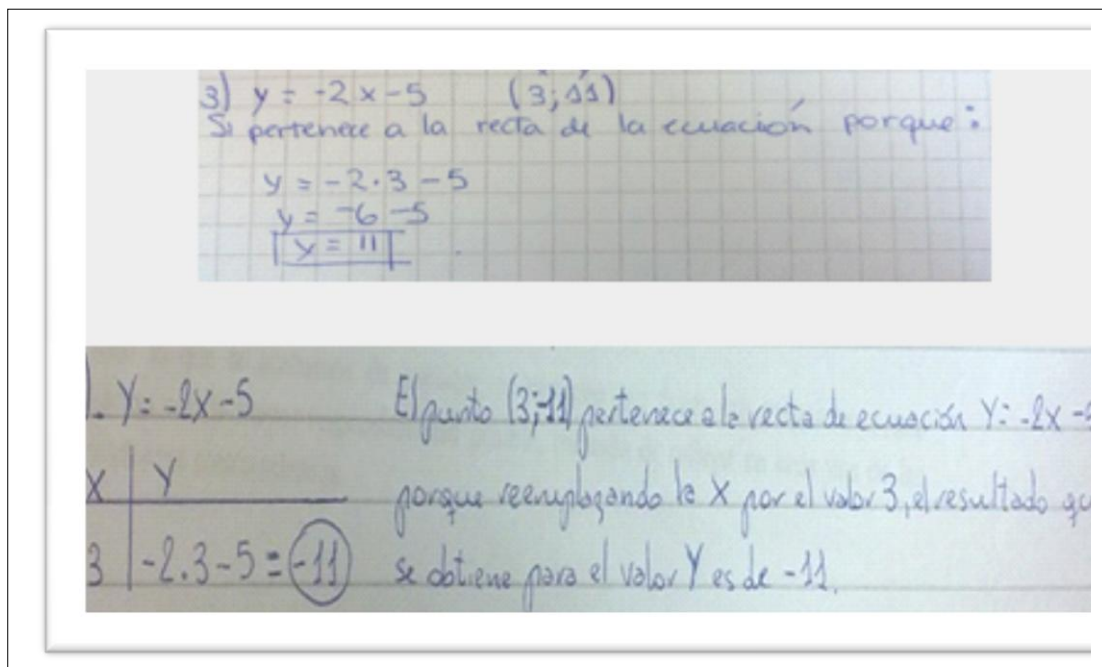 3) y = -2x-5 (3; 11)
Si pertenece a la recta de la ecuación porque:
y = -2.3-5
y = -6-5
y = 11
). Y= -2X-5 El punto (3;-11) pertenece a la recta de ecuación Y= -2X -5
X | Y porque reemplazando la X por el valor 3, el resultado qu
3 | -2.3-5 = -11 se obtiene para el valor Y es de -11.